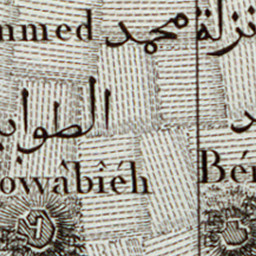 mmed محمد
نزلة
الطوابيـ
owàbîéh
Bé